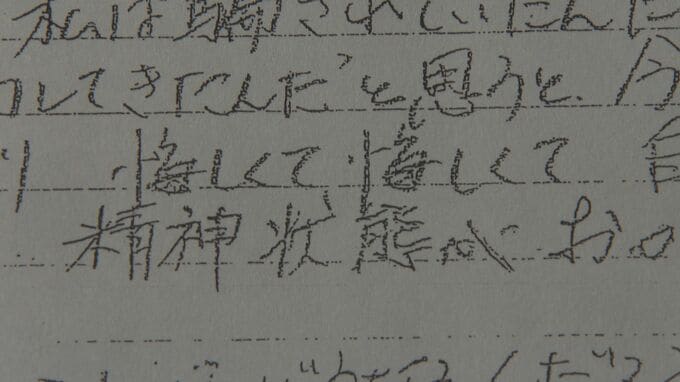 私は騙されていたんだ
してきたんだ と思うと、今
悔しくて 悔しくて 自
精神状態が おか